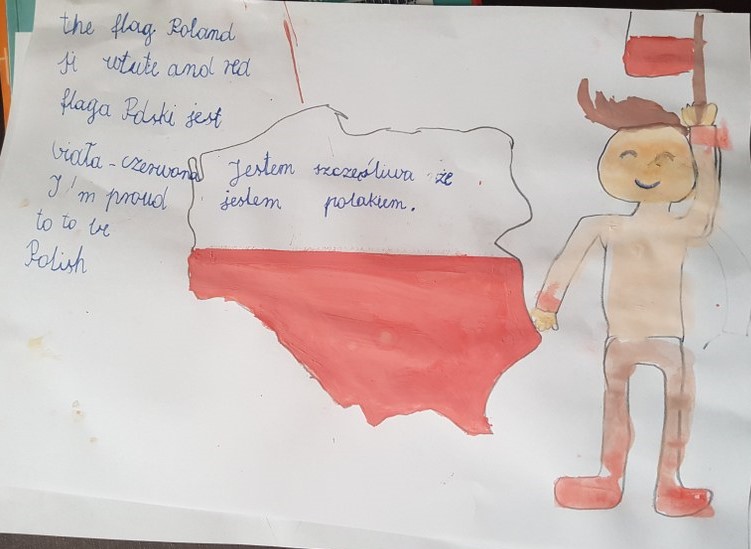 the flag Poland
is white and red
flaga Polski jest
biała-czerwona
I'm proud
to to be
Polish
Jestem szczęśliwa że
jestem polakiem.